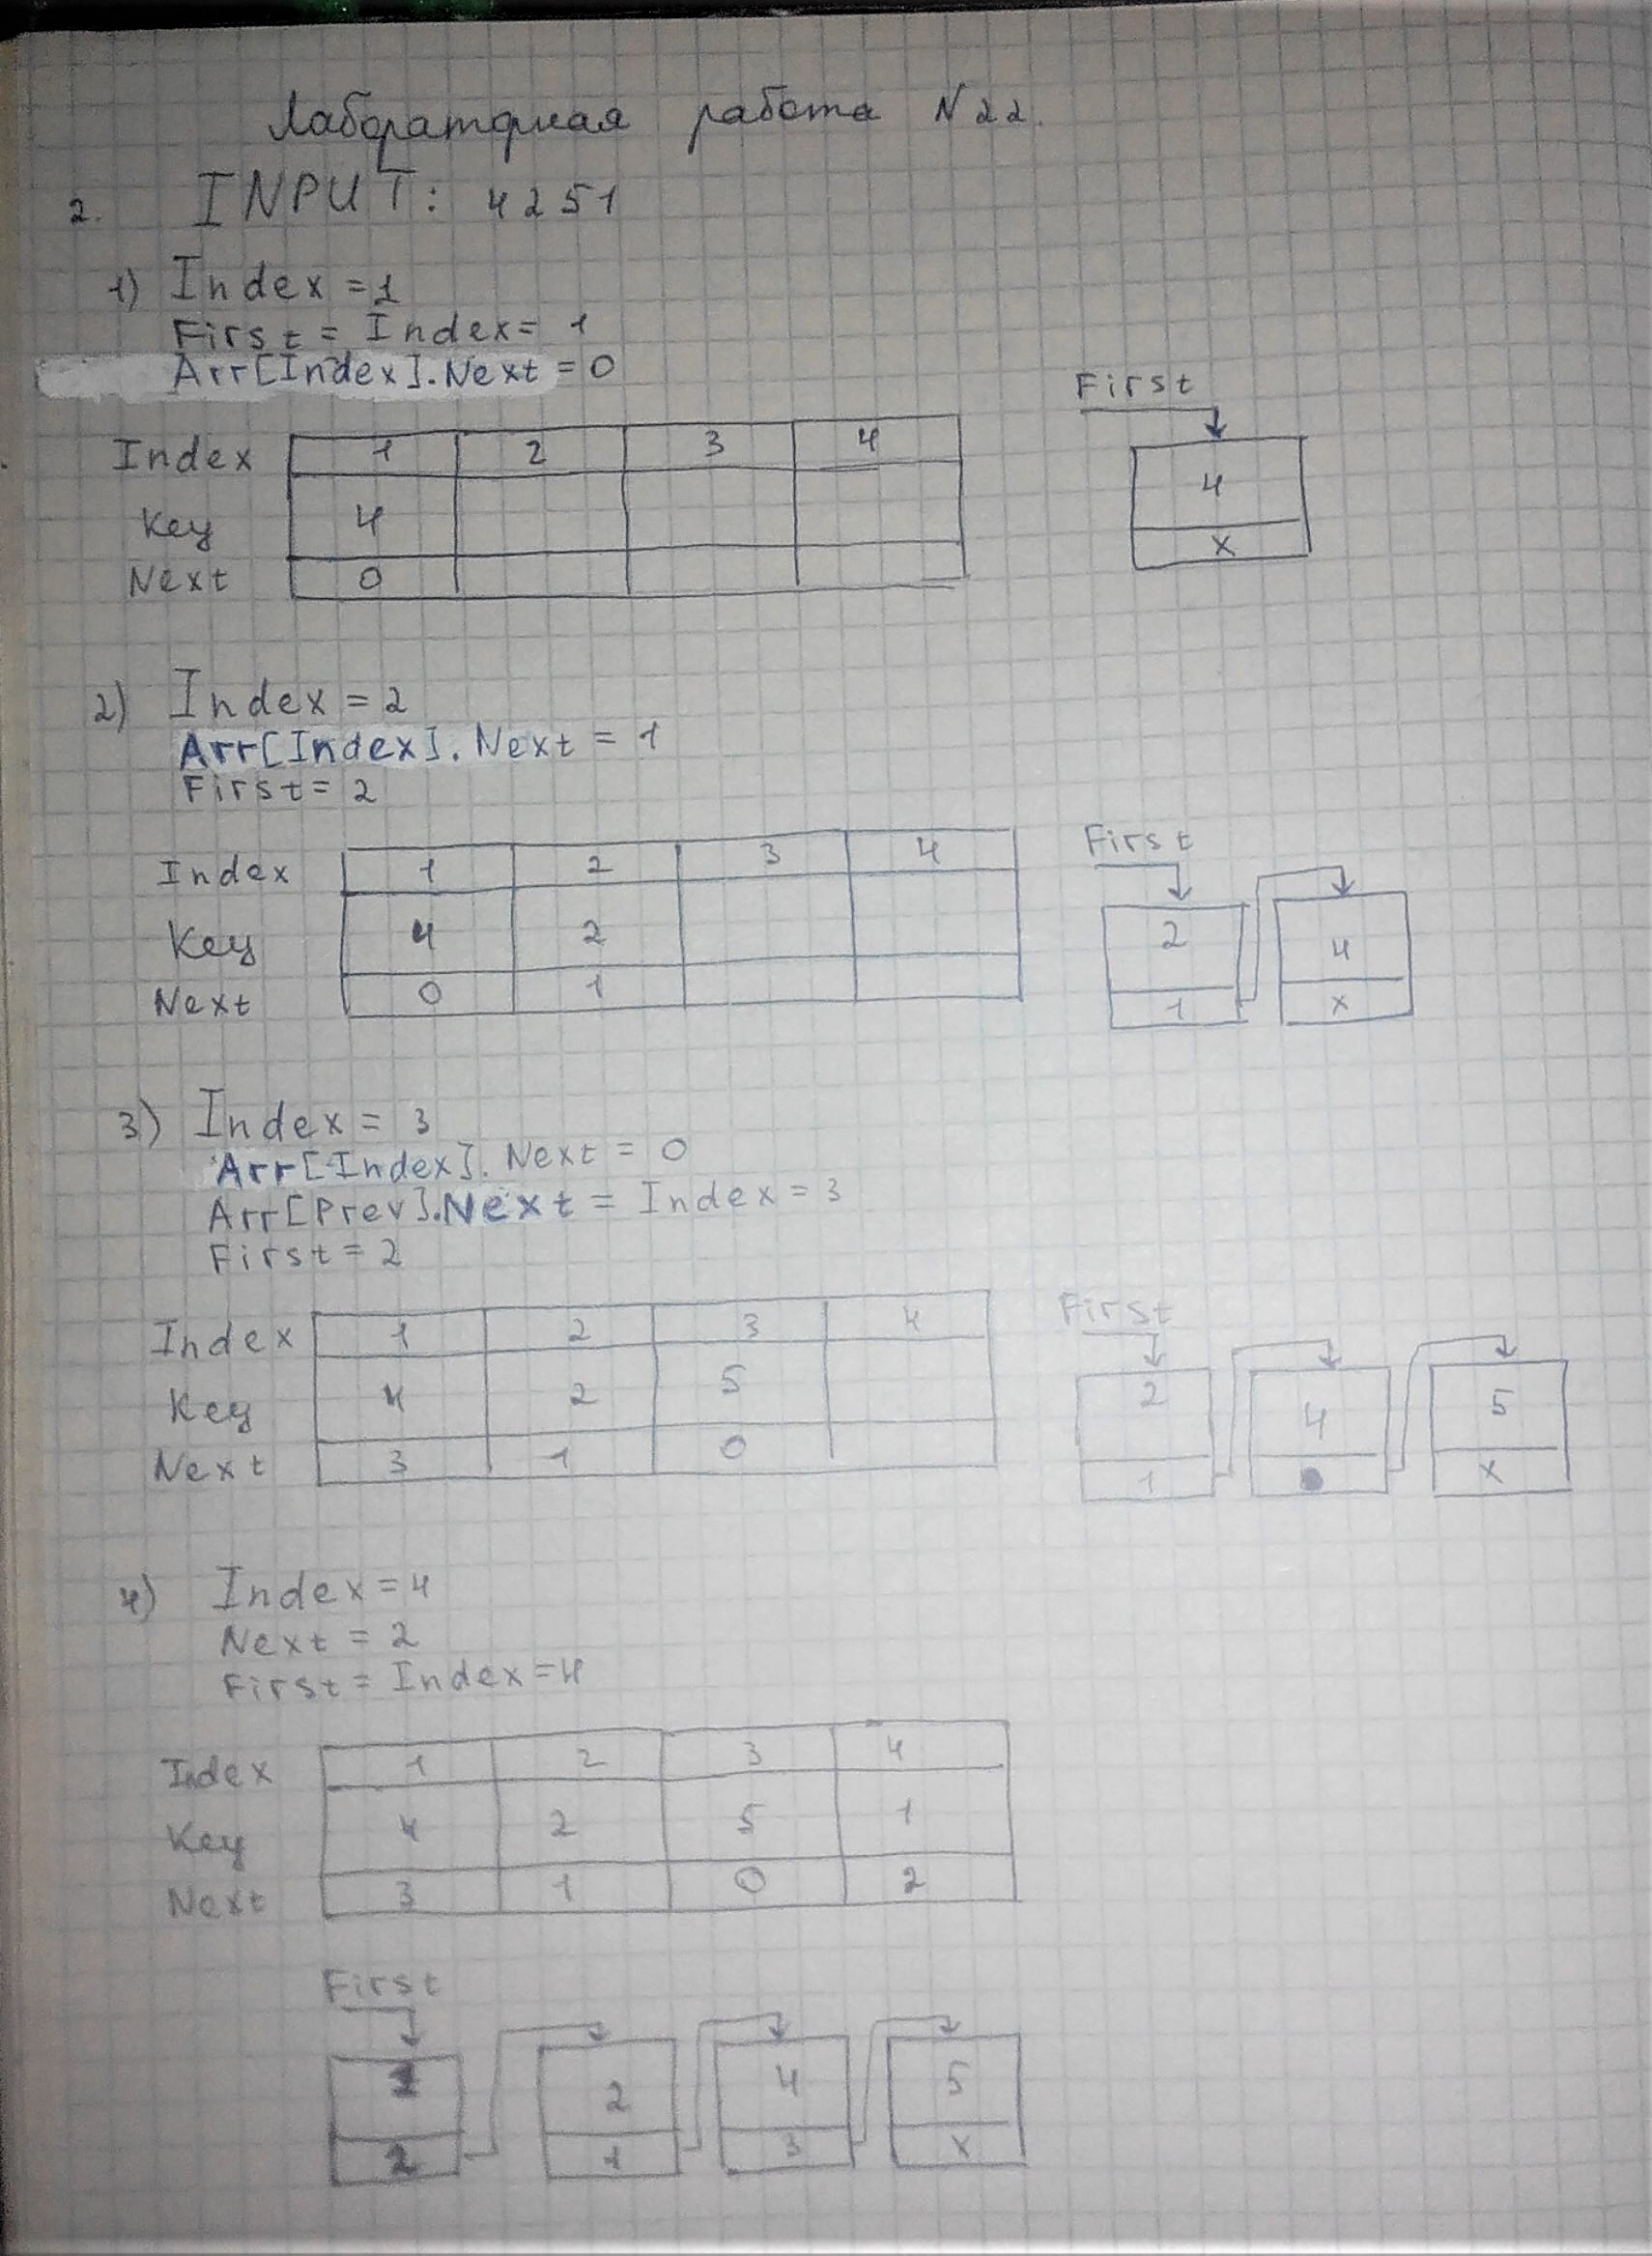 Лабораторная работа N22.
2. INPUT: 4251
1) Index = 1
First = Index = 1
Arr[Index].Next = 0
First
Index 1 2 3 4
4
Key 4
x
Next 0
2) Index = 2
Arr[Index].Next = 1
First = 2
First
Index 1 2 3 4
Key 4 2
2 4
Next 0 1
1 x
3) Index = 3
Arr[Index].Next = 0
Arr[Prev].Next = Index = 3
First = 2
First
Index 1 2 3 4
Key 4 2 5
2 4 5
Next 3 1 0
1 x
4) Index = 4
Next = 2
First = Index = 4
Index 1 2 3 4
Key 4 2 5 1
Next 3 1 0 2
First
1 2 4 5
2 1 3 x